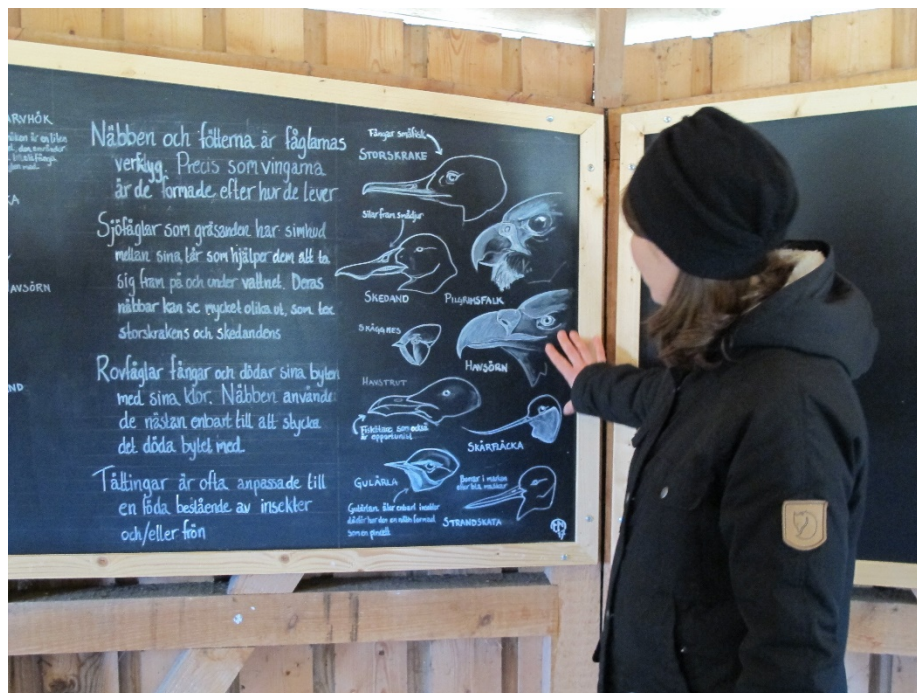 ARVHÖK
AVSÖRN
Näbben och fötterna är fåglarnas
verktyg. Precis som vingarna
är de formade efter hur de lever
Sjöfåglar som gräsanden har simhud
mellan sina tår som hjälper dem att ta
sig fram på och under vattnet. Deras
näbbar kan se mycket olika ut, som tex
storskrakens och skedandens
Rovfåglar fångar och dödar sina byten
med sina klor. Näbben använder
de nästan enbart till att stycka
det döda bytet med
Tättingar är ofta anpassade till
en föda bestående av insekter
och/eller frön
Fångar småfisk
STORSKRAKE
Silar fram smådjur
SKEDAND
PILGRIMSFALK
SKÄGGMES
HAVSÖRN
HAVSTRUT
Fiskätare som också
är opportunist
SKÄRFLÄCKA
GULÄRLA
Gulärlan äter enbart insekter
därför har den en näbb formad
som en pincett
Borrar i marken
efter bla maskar
STRANDSKATA